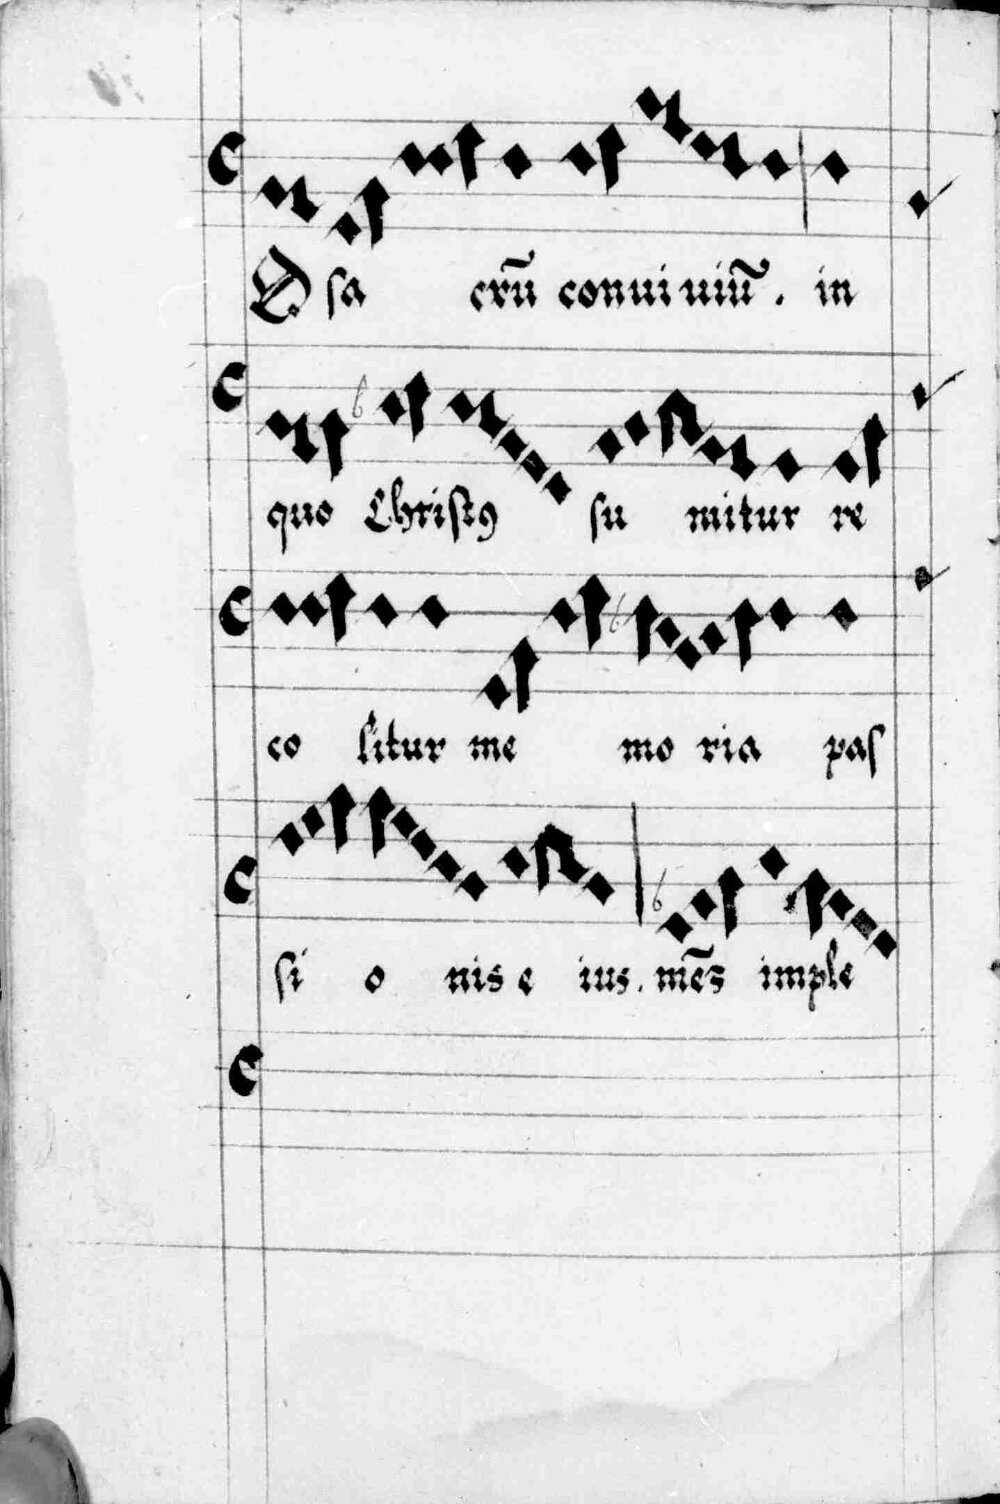 O sa crū conuiuiū. in
quo Christꝰ su mitur re
co litur me mo ria pas
si o nis e ius. mēs imple